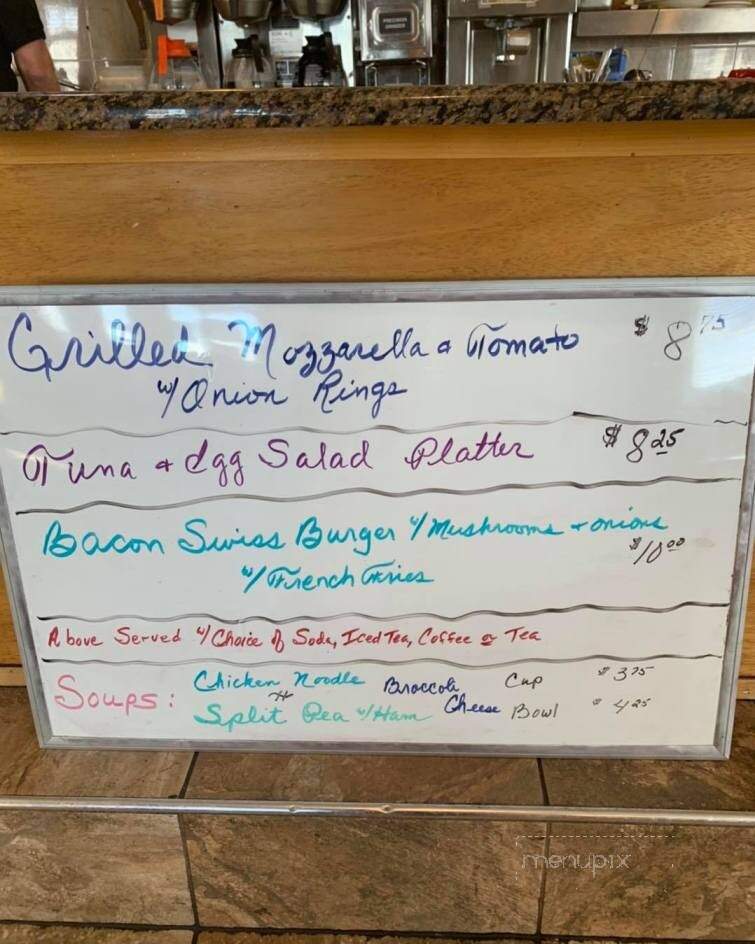 Grilled Mozzarella & Tomato $8.75
w/ Onion Rings
Tuna & Egg Salad Platter $8.25
Bacon Swiss Burger w/ Mushrooms & onions
w/ French Fries $10.00
Above Served w/ Choice of Soda, Iced Tea, Coffee or Tea
Soups: Chicken Noodle Broccoli Cup $3.75
Split Pea w/ Ham Cheese Bowl $4.25
menupix